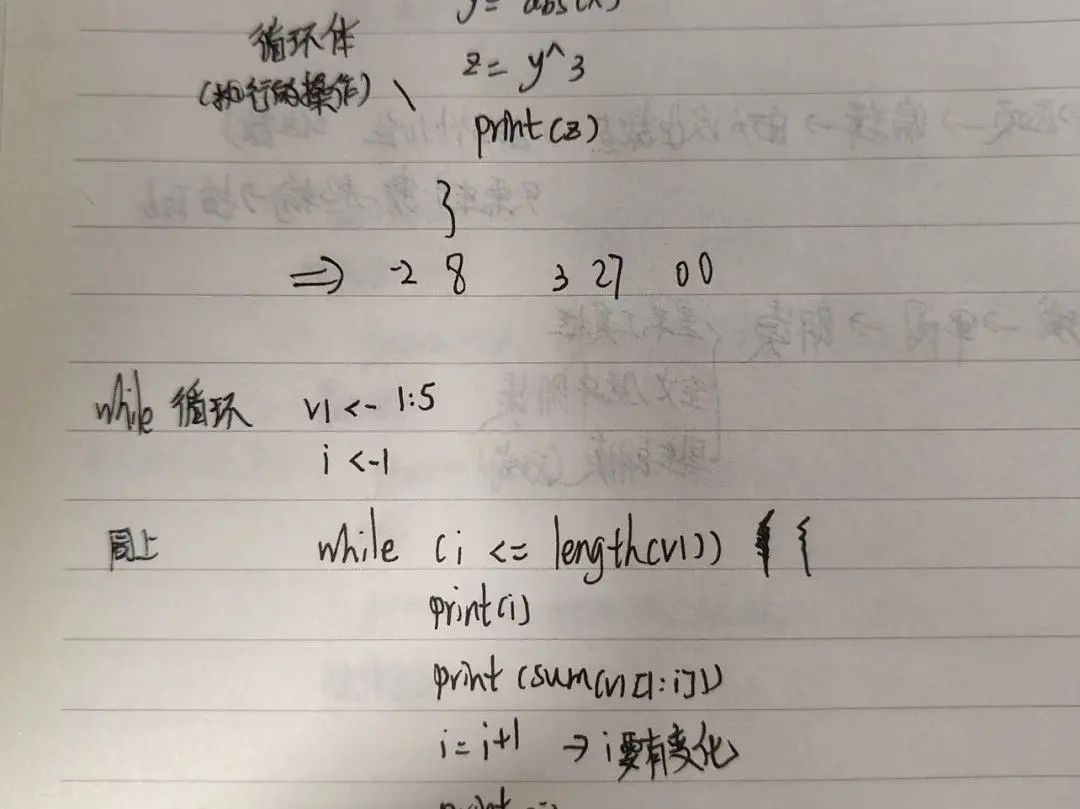 y = abs(x)
循环体
z = y^3
(执行的操作) \
print(z)
}
⇒ -2 8 3 27 0 0
while 循环 v1 <- 1:5
i <- 1
同上 while (i <= length(v1)) {
print(i)
print (sum(v1[1:i]))
i = i+1 → i要有变化